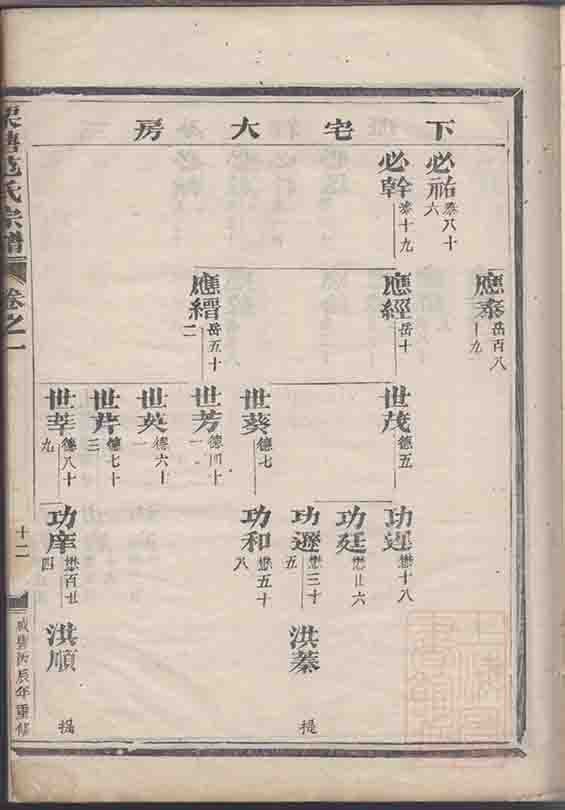 下宅大房
必祐 泰八十六
必幹 泰十九
應泰 岳百八十九
應經 岳十
應縉 岳五十二
世茂 德五
世葵 德七
世芳 德四十一
世英 德六十一
世芹 德七十三
世莘 德八十九
功 懋十八
功廷 懋廿六
功遜 懋三十五
功和 懋五十八
功庠 懋百廿四
洪蓁
洪順
提
提
栗塘范氏宗譜
卷之一
十二
咸豐丙辰年重修